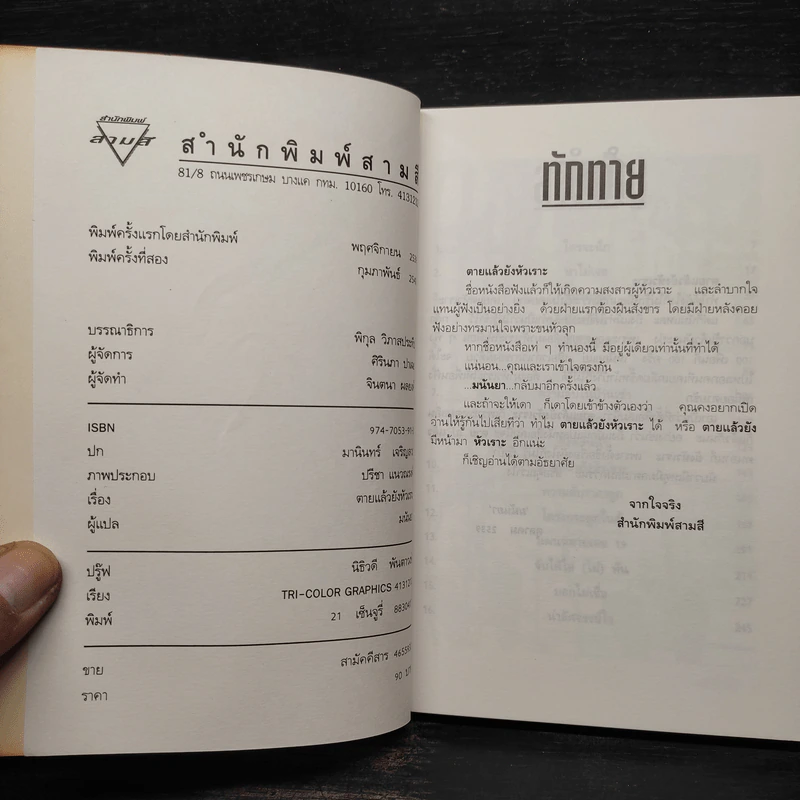 สำนักพิมพ์
สามสี
สำนักพิมพ์สามสี
81/8 ถนนเพชรเกษม บางแค กทม. 10160 โทร.
พิมพ์ครั้งแรกโดยสำนักพิมพ์ พฤศจิกายน
พิมพ์ครั้งที่สอง กุมภาพันธ์
บรรณาธิการ พิกุล
ผู้จัดการ ศิรินภา
ผู้จัดทำ จินตนา
ISBN 974-7053-91-
ปก มานินทร์
ภาพประกอบ ปรีชา
เรื่อง ตายแล้วยังหัวเราะ
ผู้แปล มนันยา
ปรู๊ฟ นิธิวดี
เรียง TRI-COLOR GRAPHICS
พิมพ์ 21 เซ็นจูรี่
ขาย สามัคคีสาร
ราคา 90
ทักทาย
ตายแล้วยังหัวเราะ
ชื่อหนังสือฟังแล้วก็ให้เกิดความสงสารผู้หัวเราะ และลำบากใจ
แทนผู้ฟังเป็นอย่างยิ่ง ด้วยฝ่ายแรกต้องฝืนสังขาร โดยมีฝ่ายหลังคอย
ฟังอย่างทรมานใจเพราะขนหัวลุก
หากชื่อหนังสือเท่ ๆ ทำนองนี้ มีอยู่ผู้เดียวเท่านั้นที่ทำได้
แน่นอน...คุณและเราเข้าใจตรงกัน
...มนันยา...กลับมาอีกครั้งแล้ว
และถ้าจะให้เดา ก็เดาโดยเข้าข้างตัวเองว่า คุณคงอยากเปิด
อ่านให้รู้กันไปเสียทีว่า ทำไม ตายแล้วยังหัวเราะ ได้ หรือ ตายแล้วยัง
มีหน้ามา หัวเราะ อีกแน่ะ
ก็เชิญอ่านได้ตามอัธยาศัย
จากใจจริง
สำนักพิมพ์สามสี